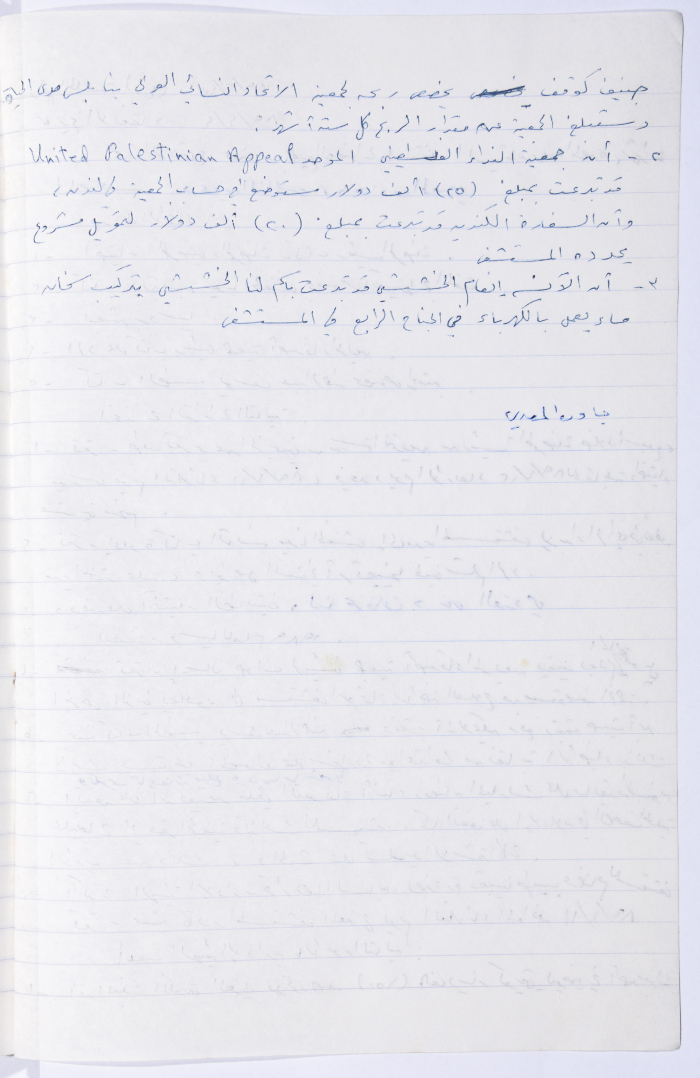 جنيف كوقف يخصص ربعه لجمعية الاتحاد النسائي العربي بنابلس مدى الحياة
وستبلغ الجمعية عن مقدار الربع كل ستة أشهر.
٢- أن جمعية النداء الفلسطيني الموحد United Palestinian Appeal
قد تبرعت بمبلغ (٢٥) ألف دولار ستوضع في حساب الجمعية في لندن،
وأن السفارة الكندية قد تبرعت بمبلغ (٢٠) ألف دولار لتمويل مشروع
يحدده المستشفى.
٣- أن الآنسة إنعام الخشيشي قد تبرعت باسم لنا الخشيشي بتركيب سخان
ماء يعمل بالكهرباء في الجناح الرابع في المستشفى
المصري